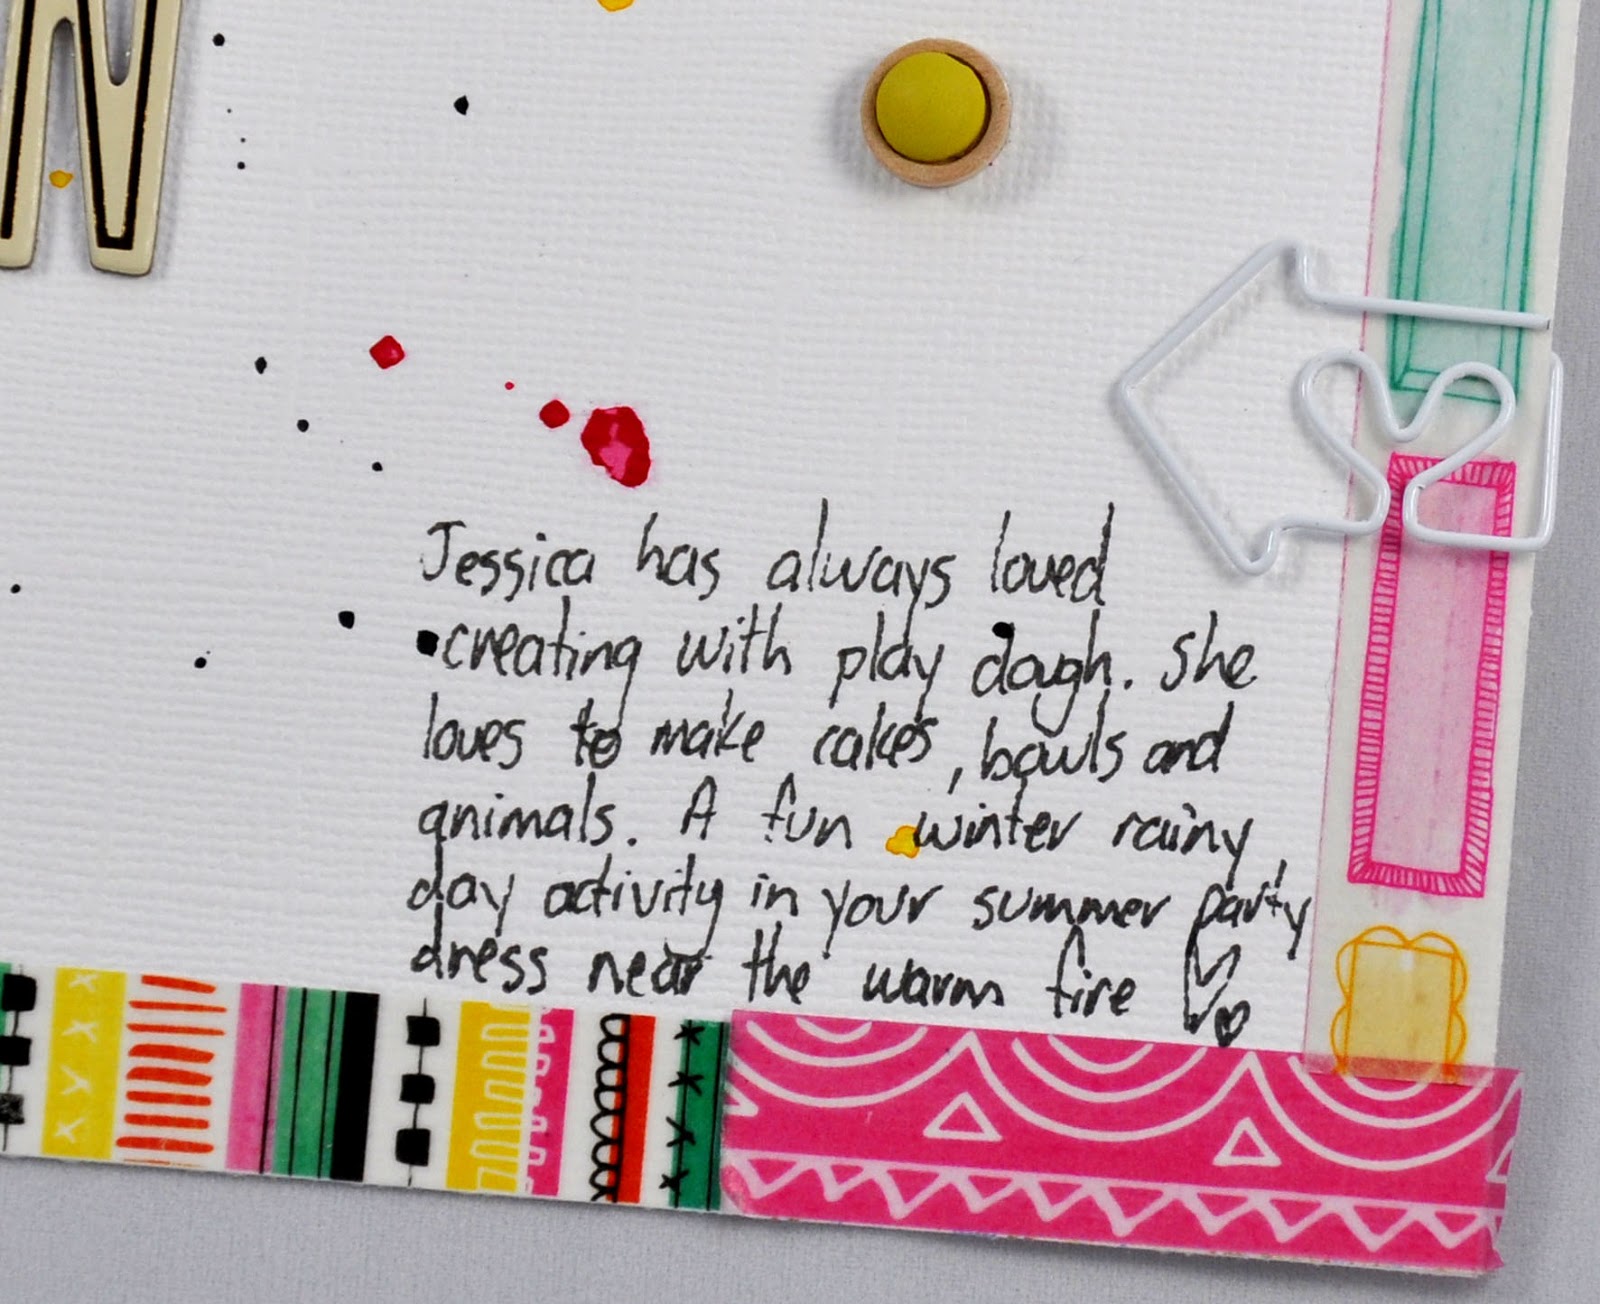 N
Jessica has always loved
creating with play dough. She
loves to make cakes, bowls and
animals. A fun winter rainy
day activity in your summer party
dress near the warm fire